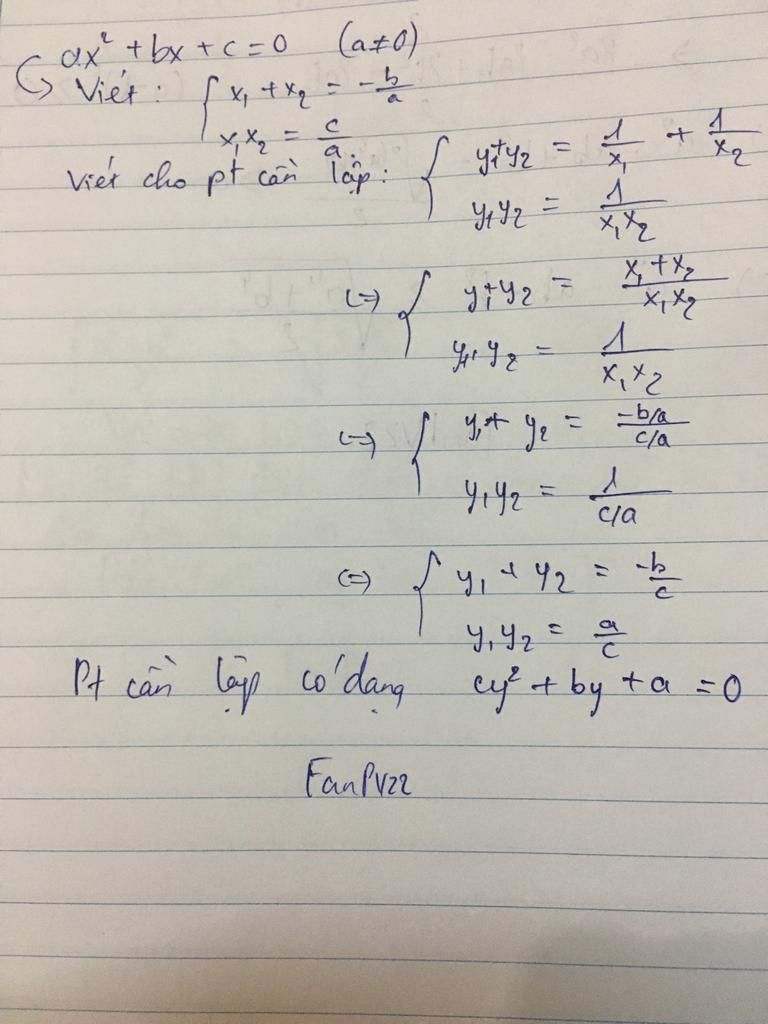 ax² + bx + c = 0 (a≠0)
↪ Viét : { x₁ + x₂ = -b/a
x₁x₂ = c/a
Viét cho pt cần lập: { y₁+y₂ = 1/x₁ + 1/x₂
y₁y₂ = 1/x₁x₂
(=) { y₁+y₂ = x₁+x₂/x₁x₂
y₁.y₂ = 1/x₁x₂
(=) { y₁+ y₂ = -b/a/c/a
y₁y₂ = 1/c/a
(=) { y₁ + y₂ = -b/c
y₁y₂ = a/c
Pt cần lập có dạng cy² + by + a = 0
FanPV22